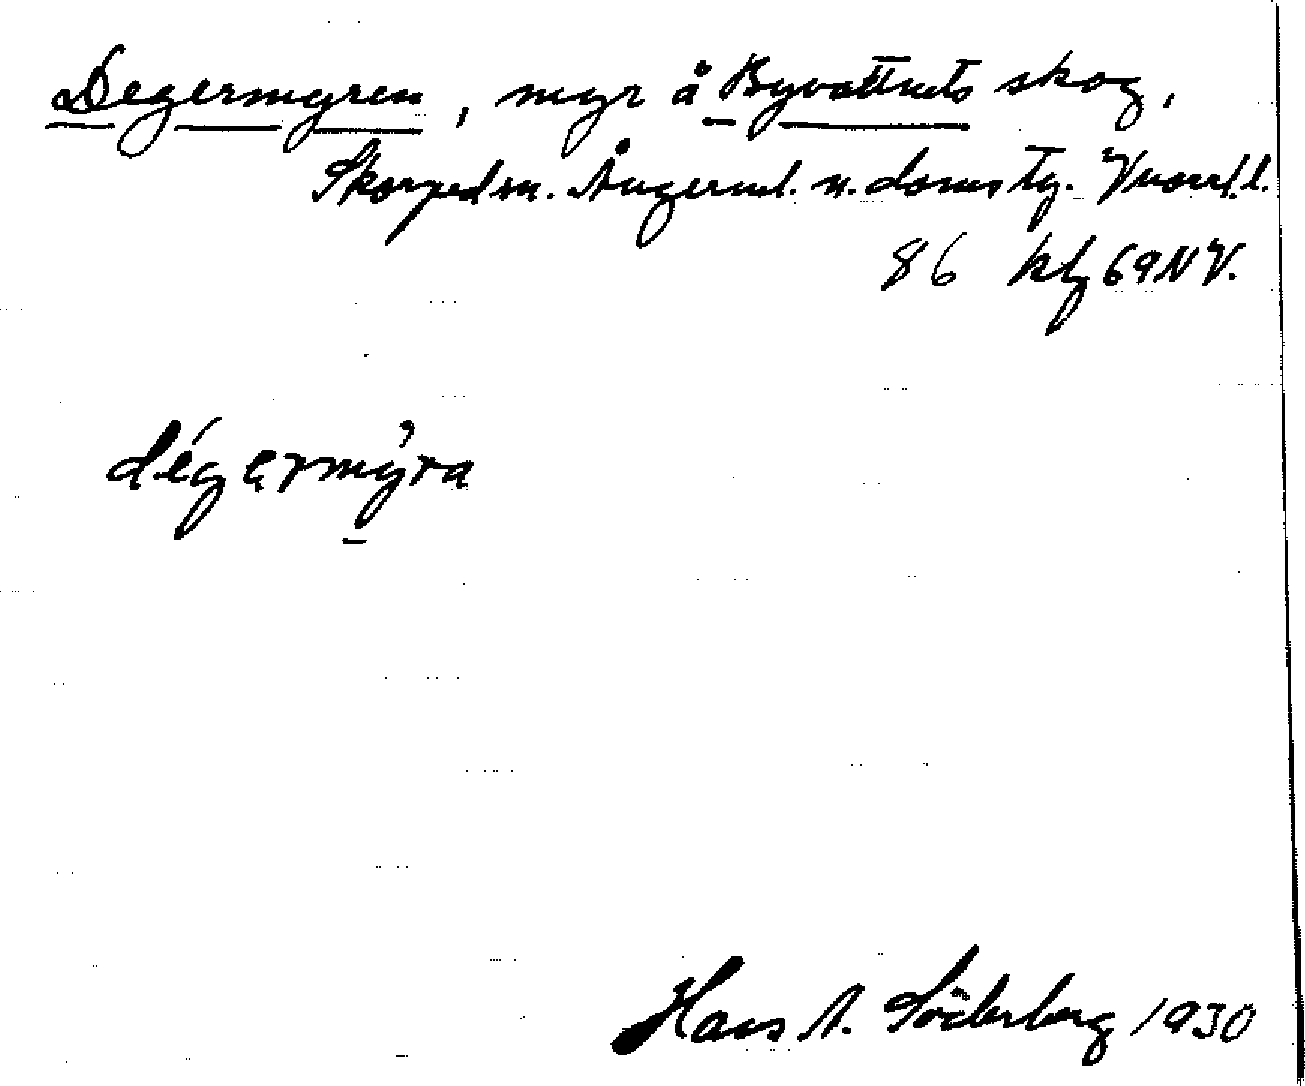 Degermyren, myr å Byvattnets skog,
Skorped sn. Ångerml. n. doms tg. Vnorrl. l.
86 kbl 69 NV.
dégermỳra
Hans A. Söderberg 1930